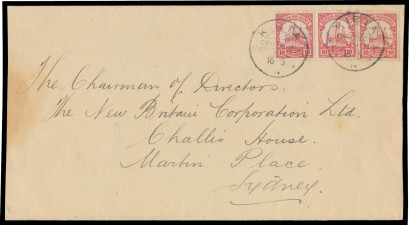 10 10 10
The Chairman of Directors.
The New Britain Corporation Ltd.
Challis House.
Martin Place.
Sydney.